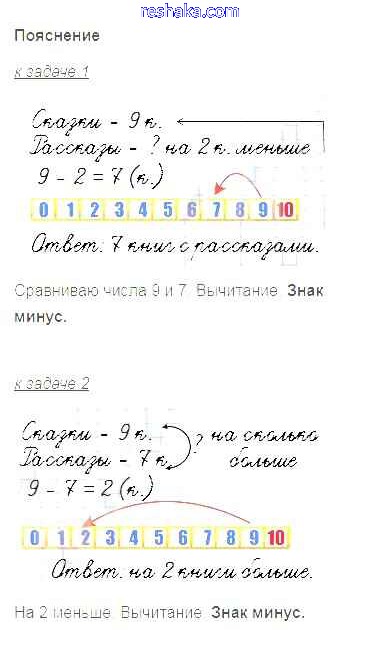 reshaka.com
Пояснение
к задаче 1
Сказки - 9 к.
Рассказы - ? на 2 к. меньше
9 - 2 = 7 (к.)
0 1 2 3 4 5 6 7 8 9 10
Ответ: 7 книг с рассказами.
Сравниваю числа 9 и 7. Вычитание. Знак
минус.
к задаче 2
Сказки - 9 к. ? на сколько
Рассказы - 7 к. больше
9 - 7 = 2 (к.)
0 1 2 3 4 5 6 7 8 9 10
Ответ. на 2 книги больше.
На 2 меньше. Вычитание. Знак минус.